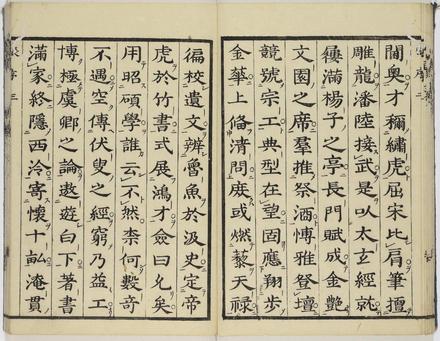 閫奥才稱繡虎屈宋比肩筆擅
雕龍潘陸接武是以太玄經就
屨滿楊子之亭長門賦成金艷
文園之席羣推祭酒愽雅登壇
競號宗工典型在望固應翔步
金華上脩清問庶或燃藜天禄
徧校遺文辨魯魚於汲史定帝
虎於竹書式展鴻才僉曰允矣
用昭碩學誰云不然柰何數奇
不遇空傳伏叟之經窮乃益工
博極虞卿之論遨遊白下著書
滿家終隱西泠寄懷十畝淹貫